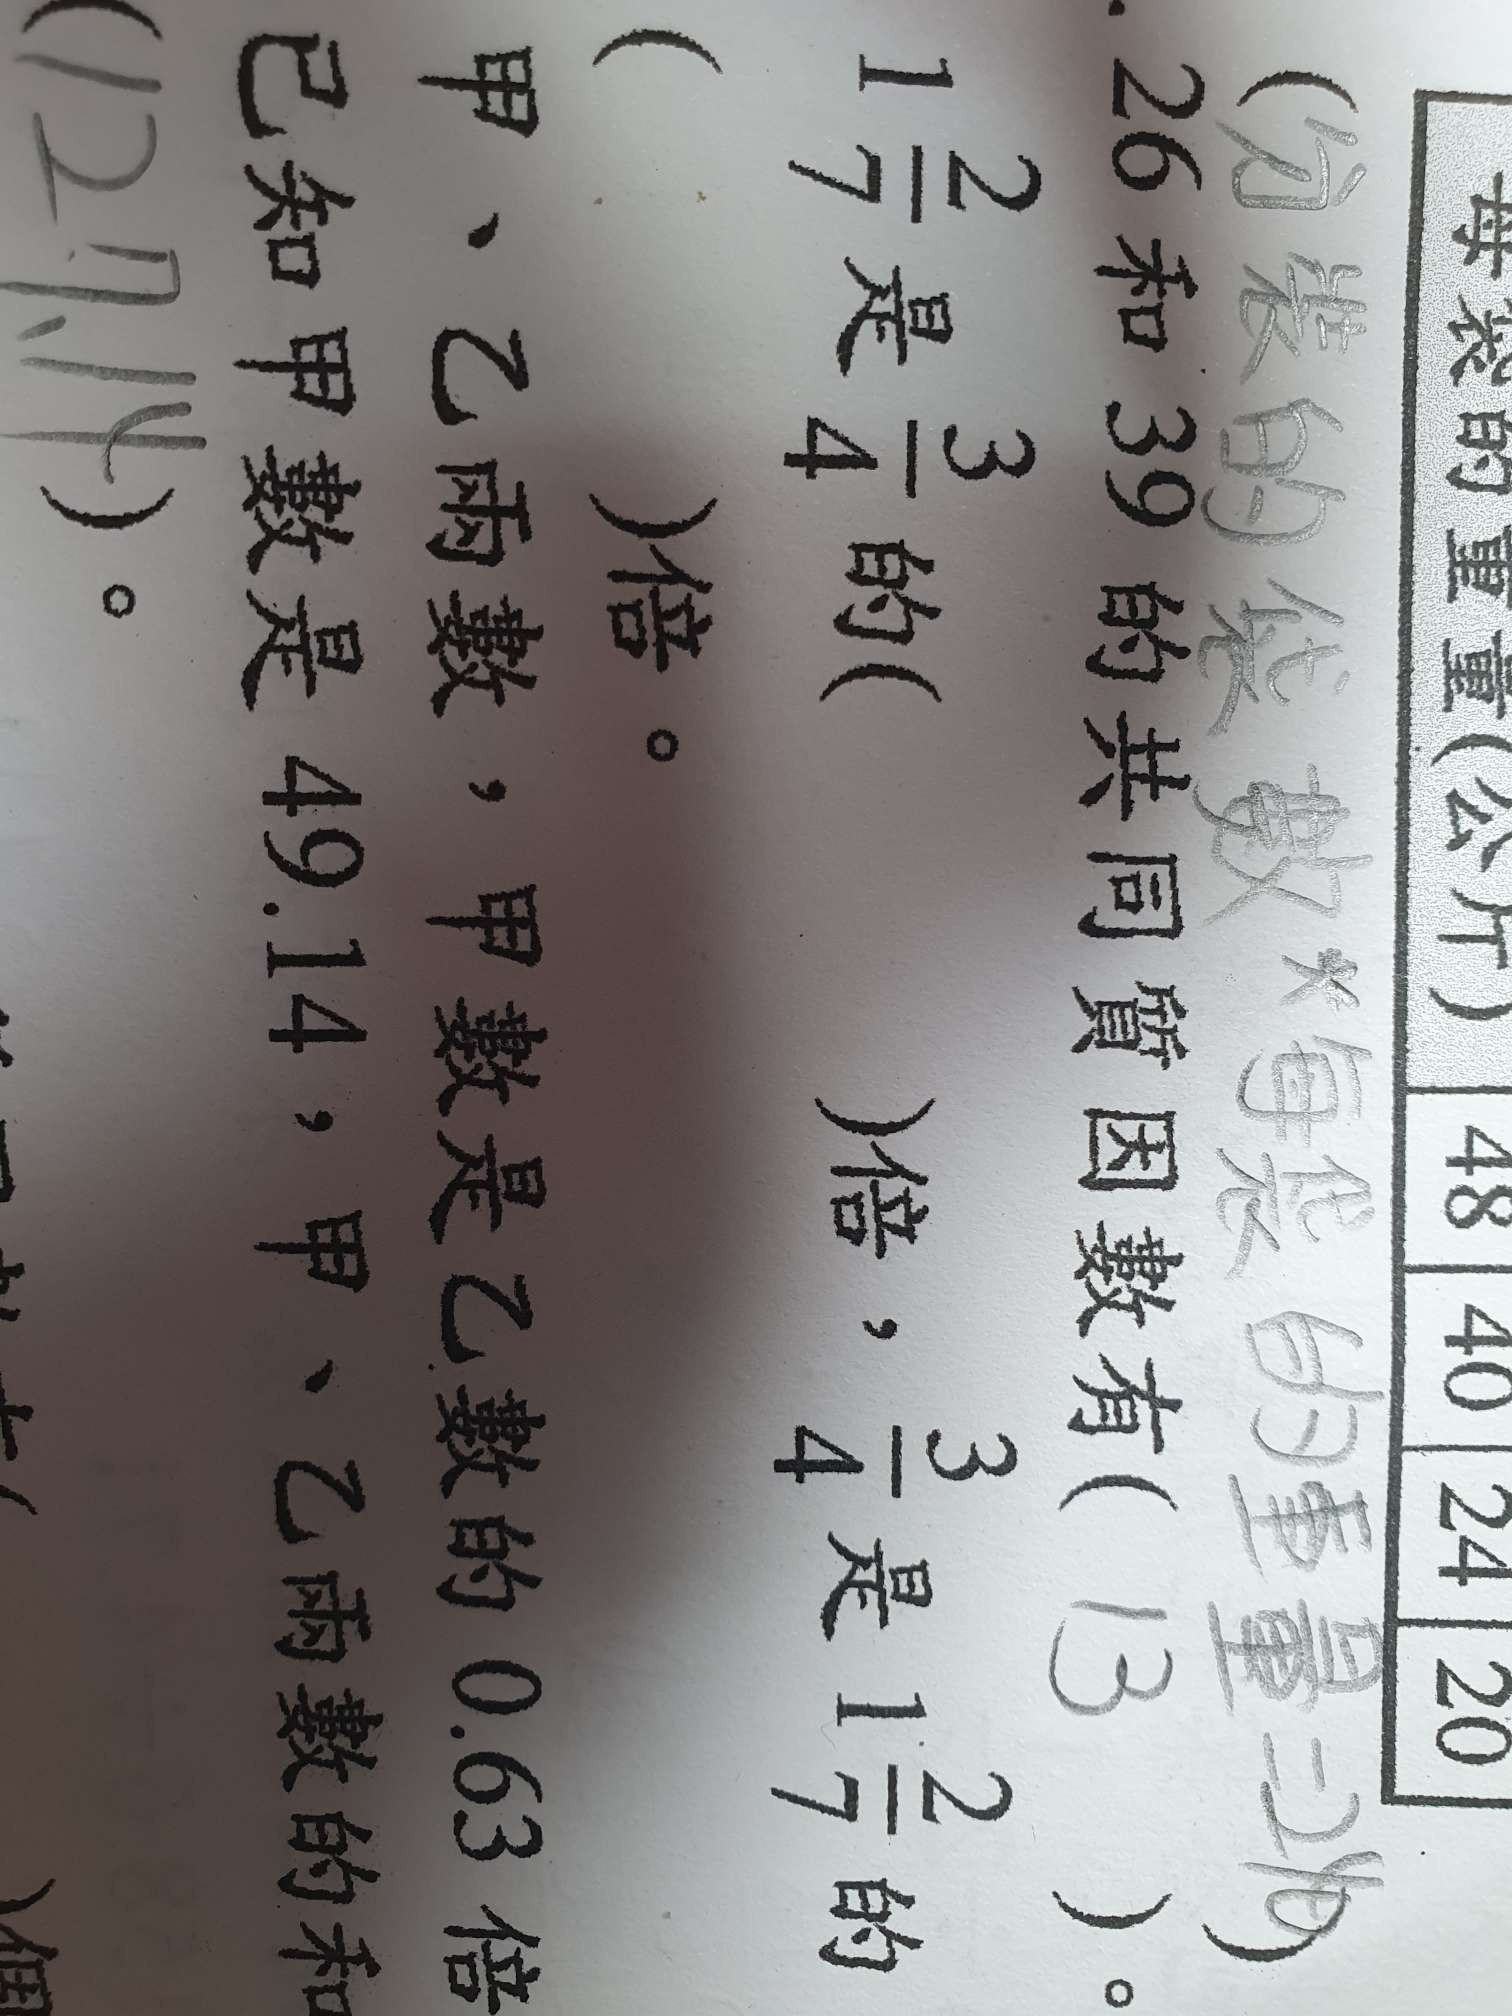 每袋的重量(公斤) 48 40 24 20
(分裝的袋數×每袋的重量=
26 和 39 的共同質因數有( 13 )。
1 2/7 是 3/4 的( )倍，3/4 是 1 2/7 的
( )倍。
甲、乙兩數，甲數是乙數的 0.63 倍
已知甲數是 49.14，甲、乙兩數的和
(127.14)。